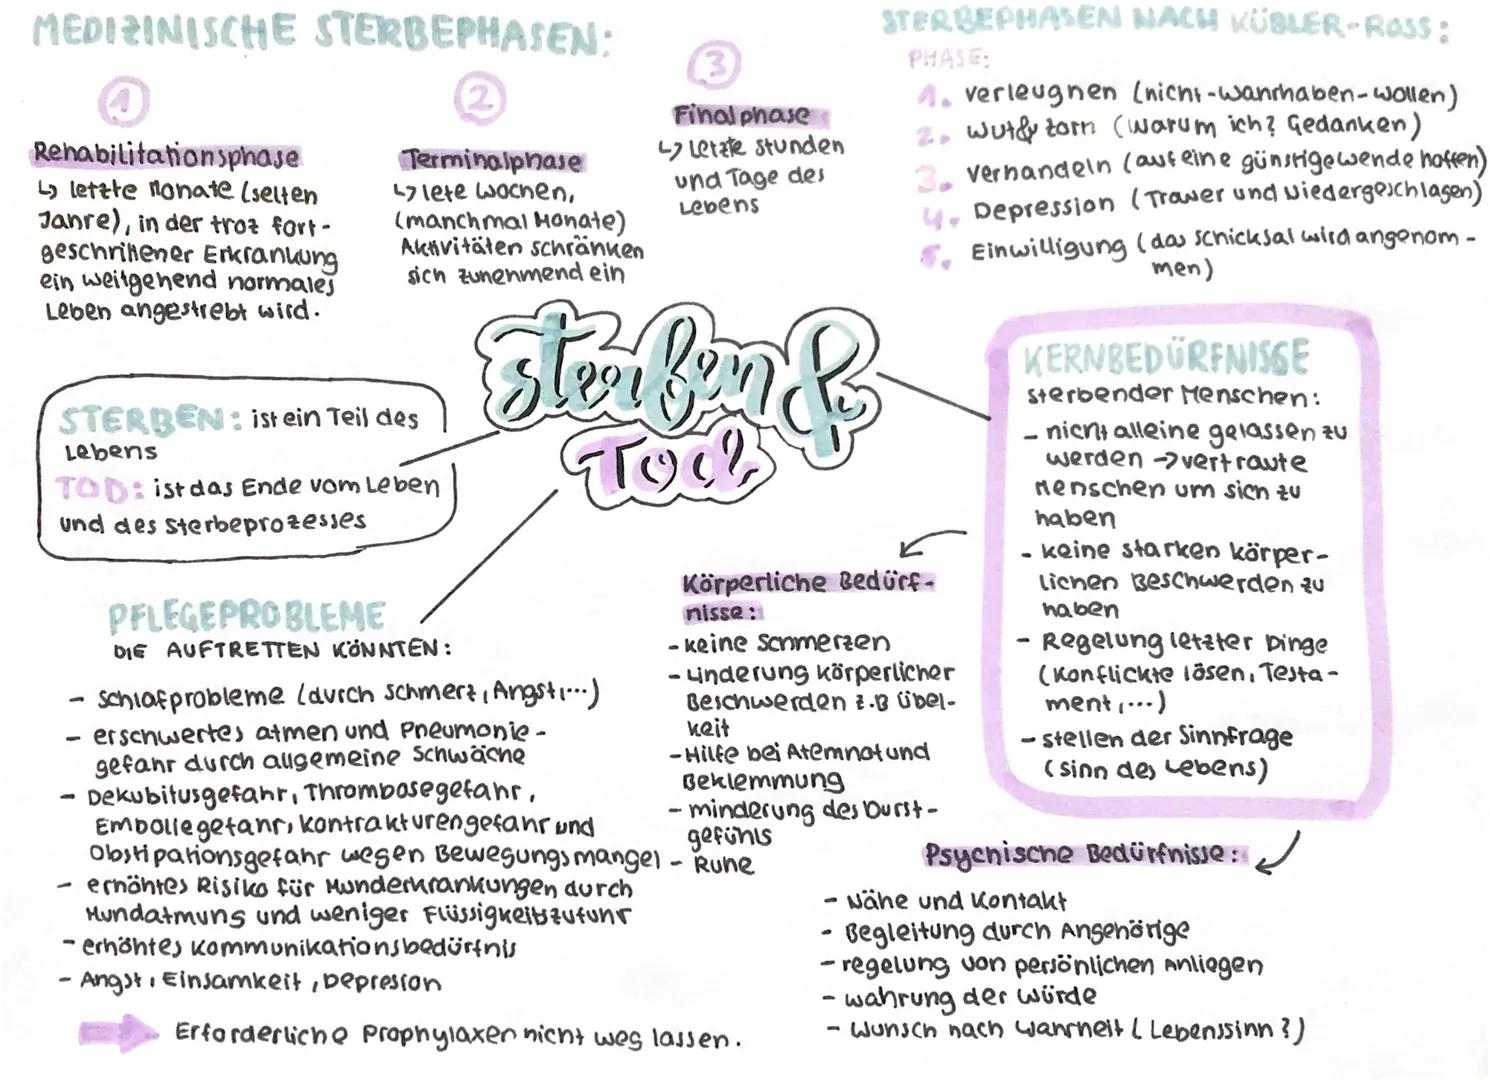 MEDIZINISCHE STERBEPHASEN:
1
Rehabilitationsphase
↳ letzte Monate (selten
Jahre), in der troz fort-
geschrittener Erkrankung
ein weitgehend normales
Leben angestrebt wird.
2
Terminalphase
↳ lete Wochen,
(manchmal Monate)
Aktivitäten schränken
sich zunehmend ein
3
Finalphase
↳ Letzte Stunden
und Tage des
Lebens
STERBEPHASEN NACH KÜBLER-ROSS:
PHASE:
1. verleugnen (nicht-wahrhaben-wollen)
2. Wut & zorn (Warum ich? Gedanken)
3. Verhandeln (auf eine günstige wende hoffen)
4. Depression (Trauer und Niedergeschlagen)
5. Einwilligung (das Schicksal wird angenom-
men)
sterben &
Tod
STERBEN: ist ein Teil des
Lebens
TOD: ist das Ende vom Leben
und des Sterbeprozesses
KERNBEDÜRFNISSE
sterbender Menschen:
- nicht alleine gelassen zu
werden → vertraute
Menschen um sich zu
haben
- keine starken körper-
lichen Beschwerden zu
haben
- Regelung letzter Dinge
(Konflickte lösen, Testa-
ment,...)
- stellen der Sinnfrage
(Sinn des Lebens)
PFLEGEPROBLEME
DIE AUFTRETTEN KÖNNTEN:
- Schlafprobleme (durch Schmerz, Angst,...)
- erschwertes atmen und Pneumonie-
gefahr durch allgemeine Schwäche
- Dekubitusgefahr, Thrombosegefahr,
Emboliegefahr, Kontrakturengefahr und
Obstipationsgefahr wegen Bewegungsmangel
- erhöhtes Risiko für Munderkrankungen durch
Mundatmung und weniger Flüssigkeitszufuhr
- erhöhtes Kommunikationsbedürfnis
- Angst, Einsamkeit, Depression
Erforderliche Prophylaxen nicht weg lassen.
Körperliche Bedürf-
nisse:
- keine Schmerzen
- Linderung körperlicher
Beschwerden z.B Übel-
keit
- Hilfe bei Atemnot und
Beklemmung
- minderung des Durst-
gefühls
- Ruhe
Psychische Bedürfnisse:
- Nähe und Kontakt
- Begleitung durch Angehörige
- regelung von persönlichen Anliegen
- wahrung der Würde
- Wunsch nach Wahrheit (Lebenssinn?)